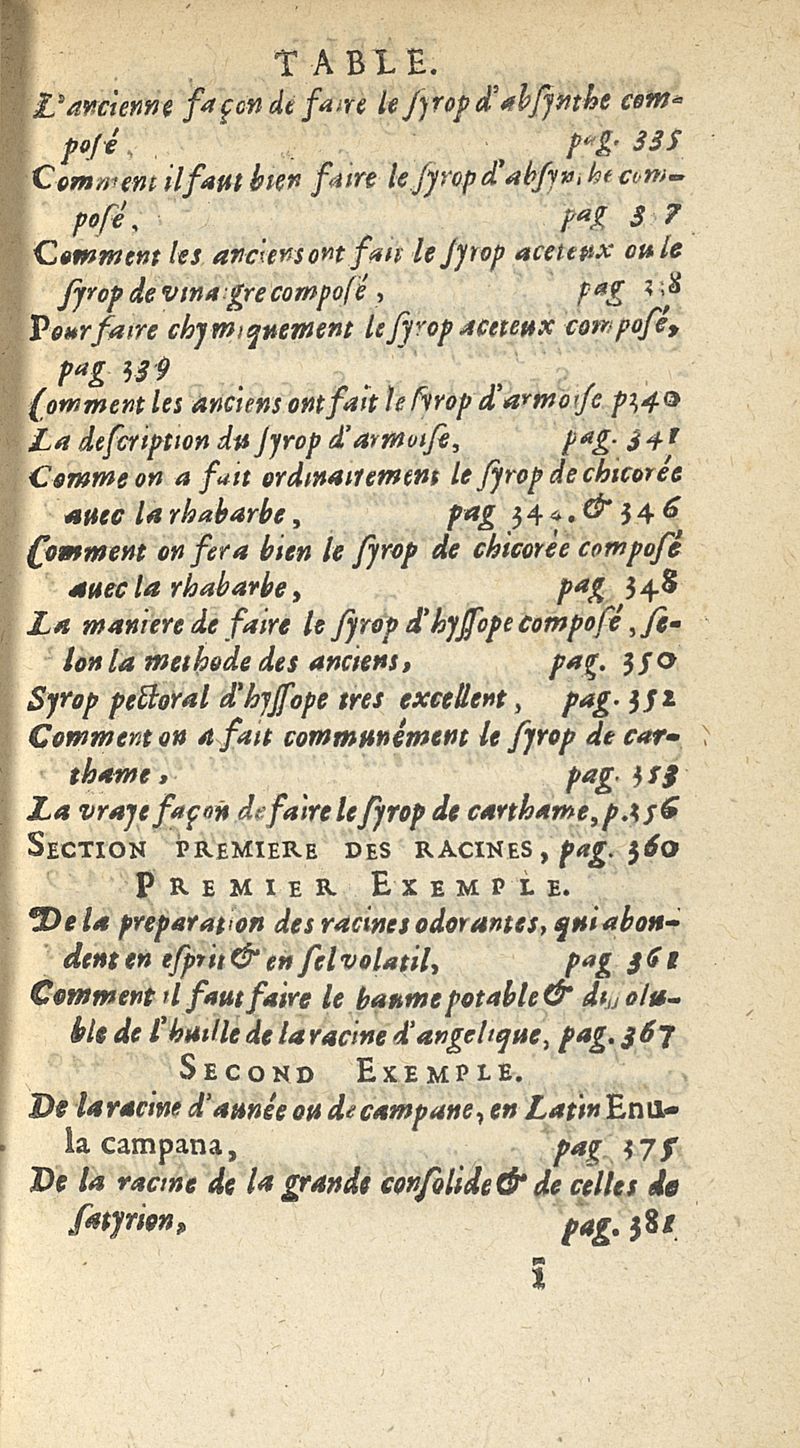 TABLE.
L'ancienne façon de faire le ſyrop d'abſynthe com-
poſé pag. 335
Comment il faut bien faire le ſyrop d'abſynthe com-
poſé, pag
Comment les anciens ont fait le ſyrop aceteux ou le
ſyrop de vinaigre compoſé, pag
Pour faire chymiquement le ſyrop aceteux compoſé,
pag 339
Comment les anciens ont fait le ſyrop d'armoiſe p340
La deſcription du ſyrop d'armoiſe, pag. 341
Comme on a fait ordinairement le ſyrop de chicorée
auec la rhabarbe, pag & 346
Comment on fera bien le ſyrop de chicorée compoſé
auec la rhabarbe, pag 348
La maniere de faire le ſyrop d'hyſſope compoſé, ſe-
lon la methode des anciens, pag. 350
Syrop pectoral d'hyſſope tres excellent, pag. 352
Comment on a fait communément le ſyrop de car-
thame, pag. 353
La vraye façon de faire le ſyrop de carthame, p.356
SECTION PREMIERE DES RACINES, pag. 360
PREMIER EXEMPLE.
De la preparation des racines odorantes, qui abon-
dent en eſprit & en ſel volatil, pag 361
Comment il faut faire le baume potable & diſſolu-
ble de l'huille de la racine d'angelique, pag. 367
SECOND EXEMPLE.
De la racine d'aunée ou de campane, en Latin Enu-
la campana, pag 375
De la racine de la grande conſolide & de celles de
ſatyrion, pag. 381
ī